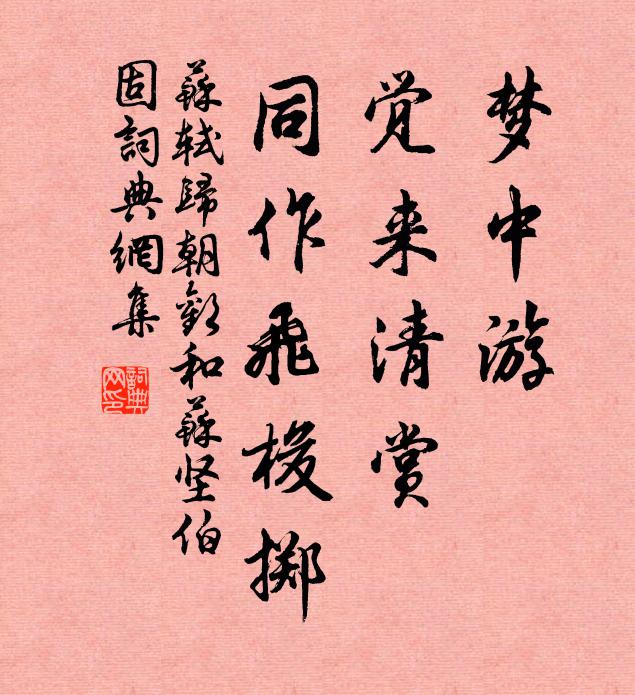 梦中游
觉来清赏
同作飞梭掷
蘇軾歸朝歡和蘇坚伯
固詞典網集
詞典網印